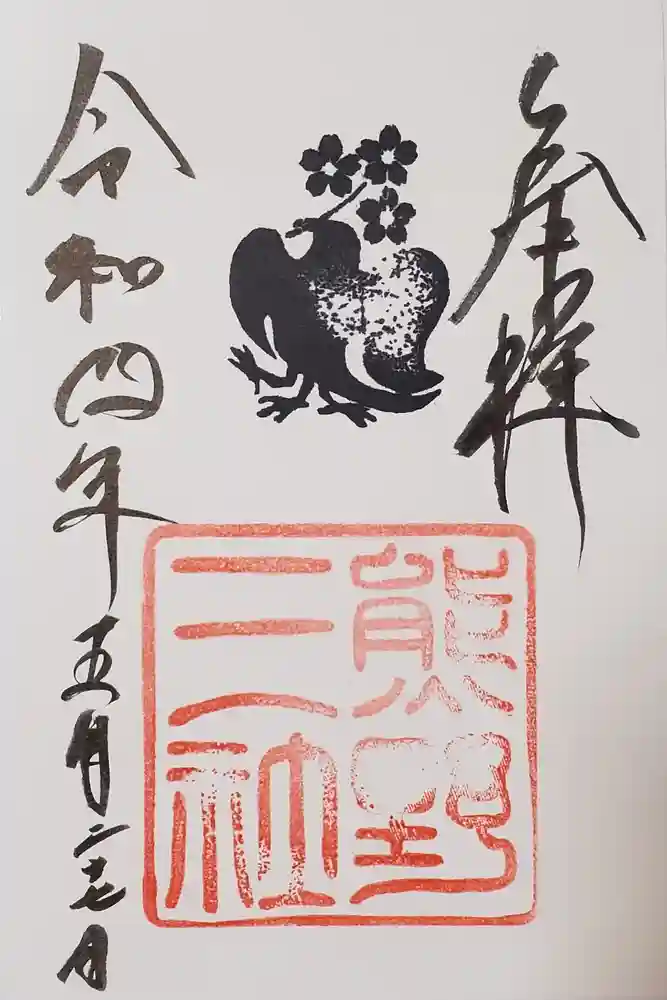 奉拝
熊野
三社
令和四年五月二十七日